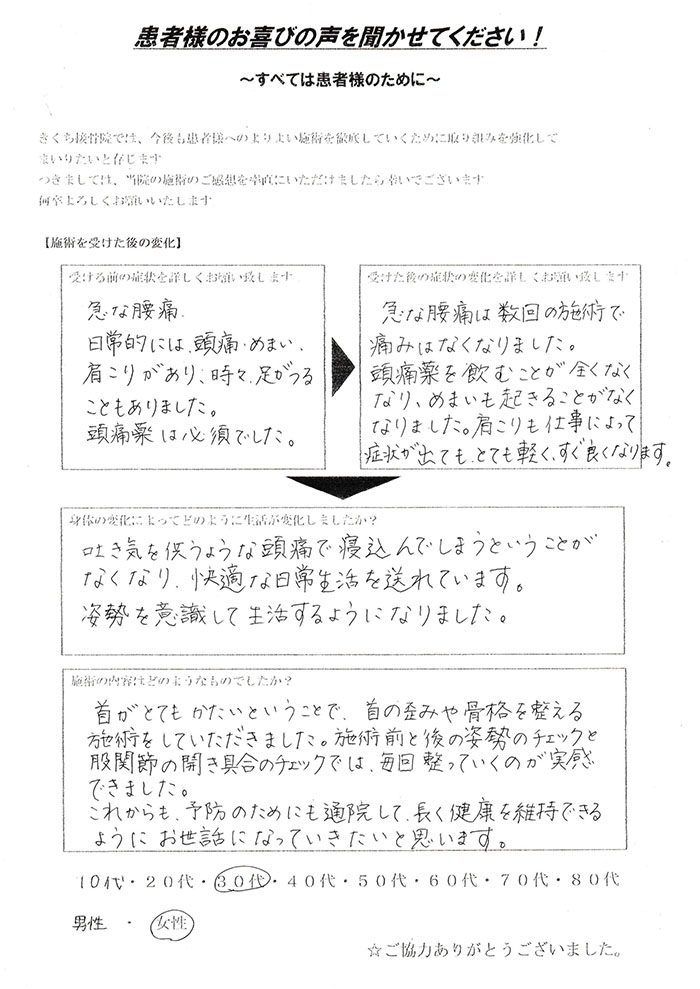 患者様のお喜びの声を聞かせてください！
～すべては患者様のために～
きくち接骨院では、今後も患者様へのよりよい施術を徹底していくために取り組みを強化して
まいりたいと存じます
つきましては、当院の施術のご感想を率直にいただけましたら幸いでございます
何卒よろしくお願いいたします
【施術を受けた後の変化】
受ける前の症状を詳しくお願い致します
急な腰痛.
日常的には、頭痛・めまい、
肩こりがあり、時々、足がつる
こともありました。
頭痛薬は必須でした。
受けた後の症状の変化を詳しくお願い致します
急な腰痛は数回の施術で
痛みはなくなりました。
頭痛薬を飲むことが全くなく
なり、めまいも起きることがなく
なりました。肩こりも仕事によって
症状が出ても、とても軽く、すぐ良くなります。
身体の変化によってどのように生活が変化しましたか？
吐き気を伴うような頭痛で寝込んでしまうということが
なくなり、快適な日常生活を送れています。
姿勢を意識して生活するようになりました。
施術の内容はどのようなものでしたか？
首がとてもかたいということで、首の歪みや骨格を整える
施術をしていただきました。施術前と後の姿勢のチェックと
股関節の開き具合のチェックでは、毎回整っていくのが実感
できました。
これからも、予防のためにも通院して、長く健康を維持できる
ようにお世話になっていきたいと思います。
10代・20代・30代・40代・50代・60代・70代・80代
男性 ・ 女性
☆ご協力ありがとうございました。